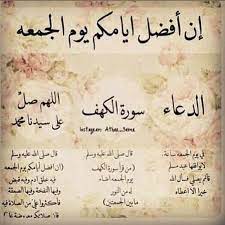 إن أفضل ايامكم يوم الجمعه
الدعاء
سورة الكهف
اللهم صلِّ
على سيدنا محمد
في يوم الجمعه ساعة
لا يوافقها عبد مسلم
قائم يصلي يسأل الله
خيرا الا اعطاه
قال صلى الله عليه وسلم
(من قرأ سورة الكهف
في يوم الجمعه اضاء
له من النور
ما بين الجمعتين)
قال صلى الله عليه وسلم
(ان افضل أيامكم يوم الجمعه
فيه خلق آدم وفيه قبض
وفيه النفخة وفيه الصعقة
فاكثروا علي من الصلاة فيه
فان صلاتكم معروضة علي)